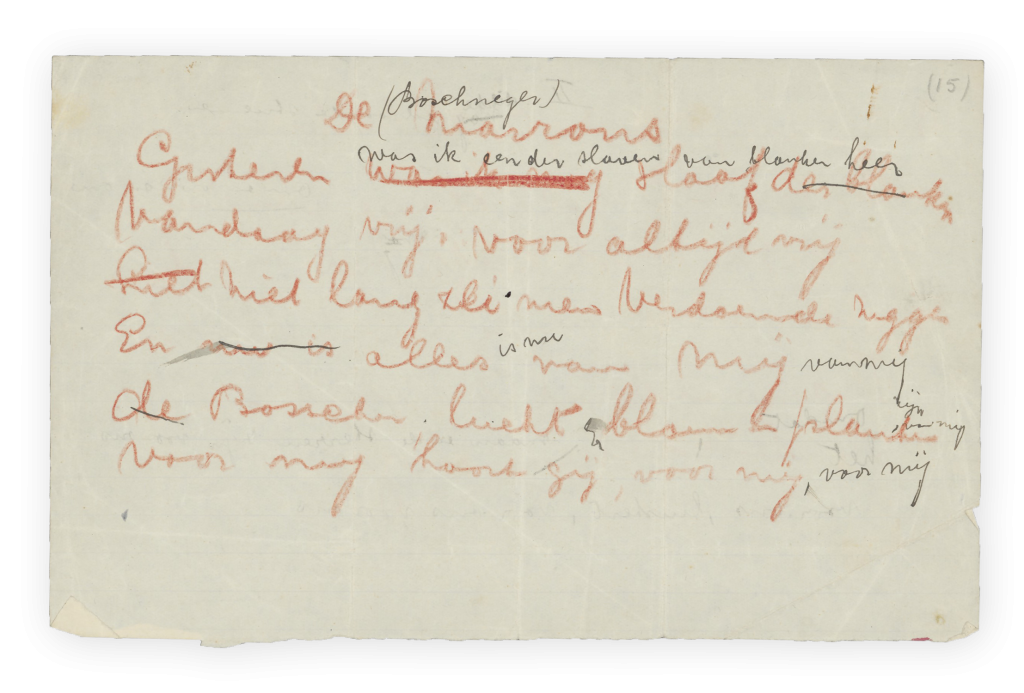 (15)
(Boschneger)
De Marrons
was ik een der slaven van blanken heer
Gisteren was ik nog slaaf der blanken
Vandaag vrij, voor altijd mij
hiet niet lang men Verdoemde
is nu
En nu is alles van mij van mij
zijn van mij
de Bosschen lucht En bloem planten
voor mij hoort gij, voor mij, voor mij